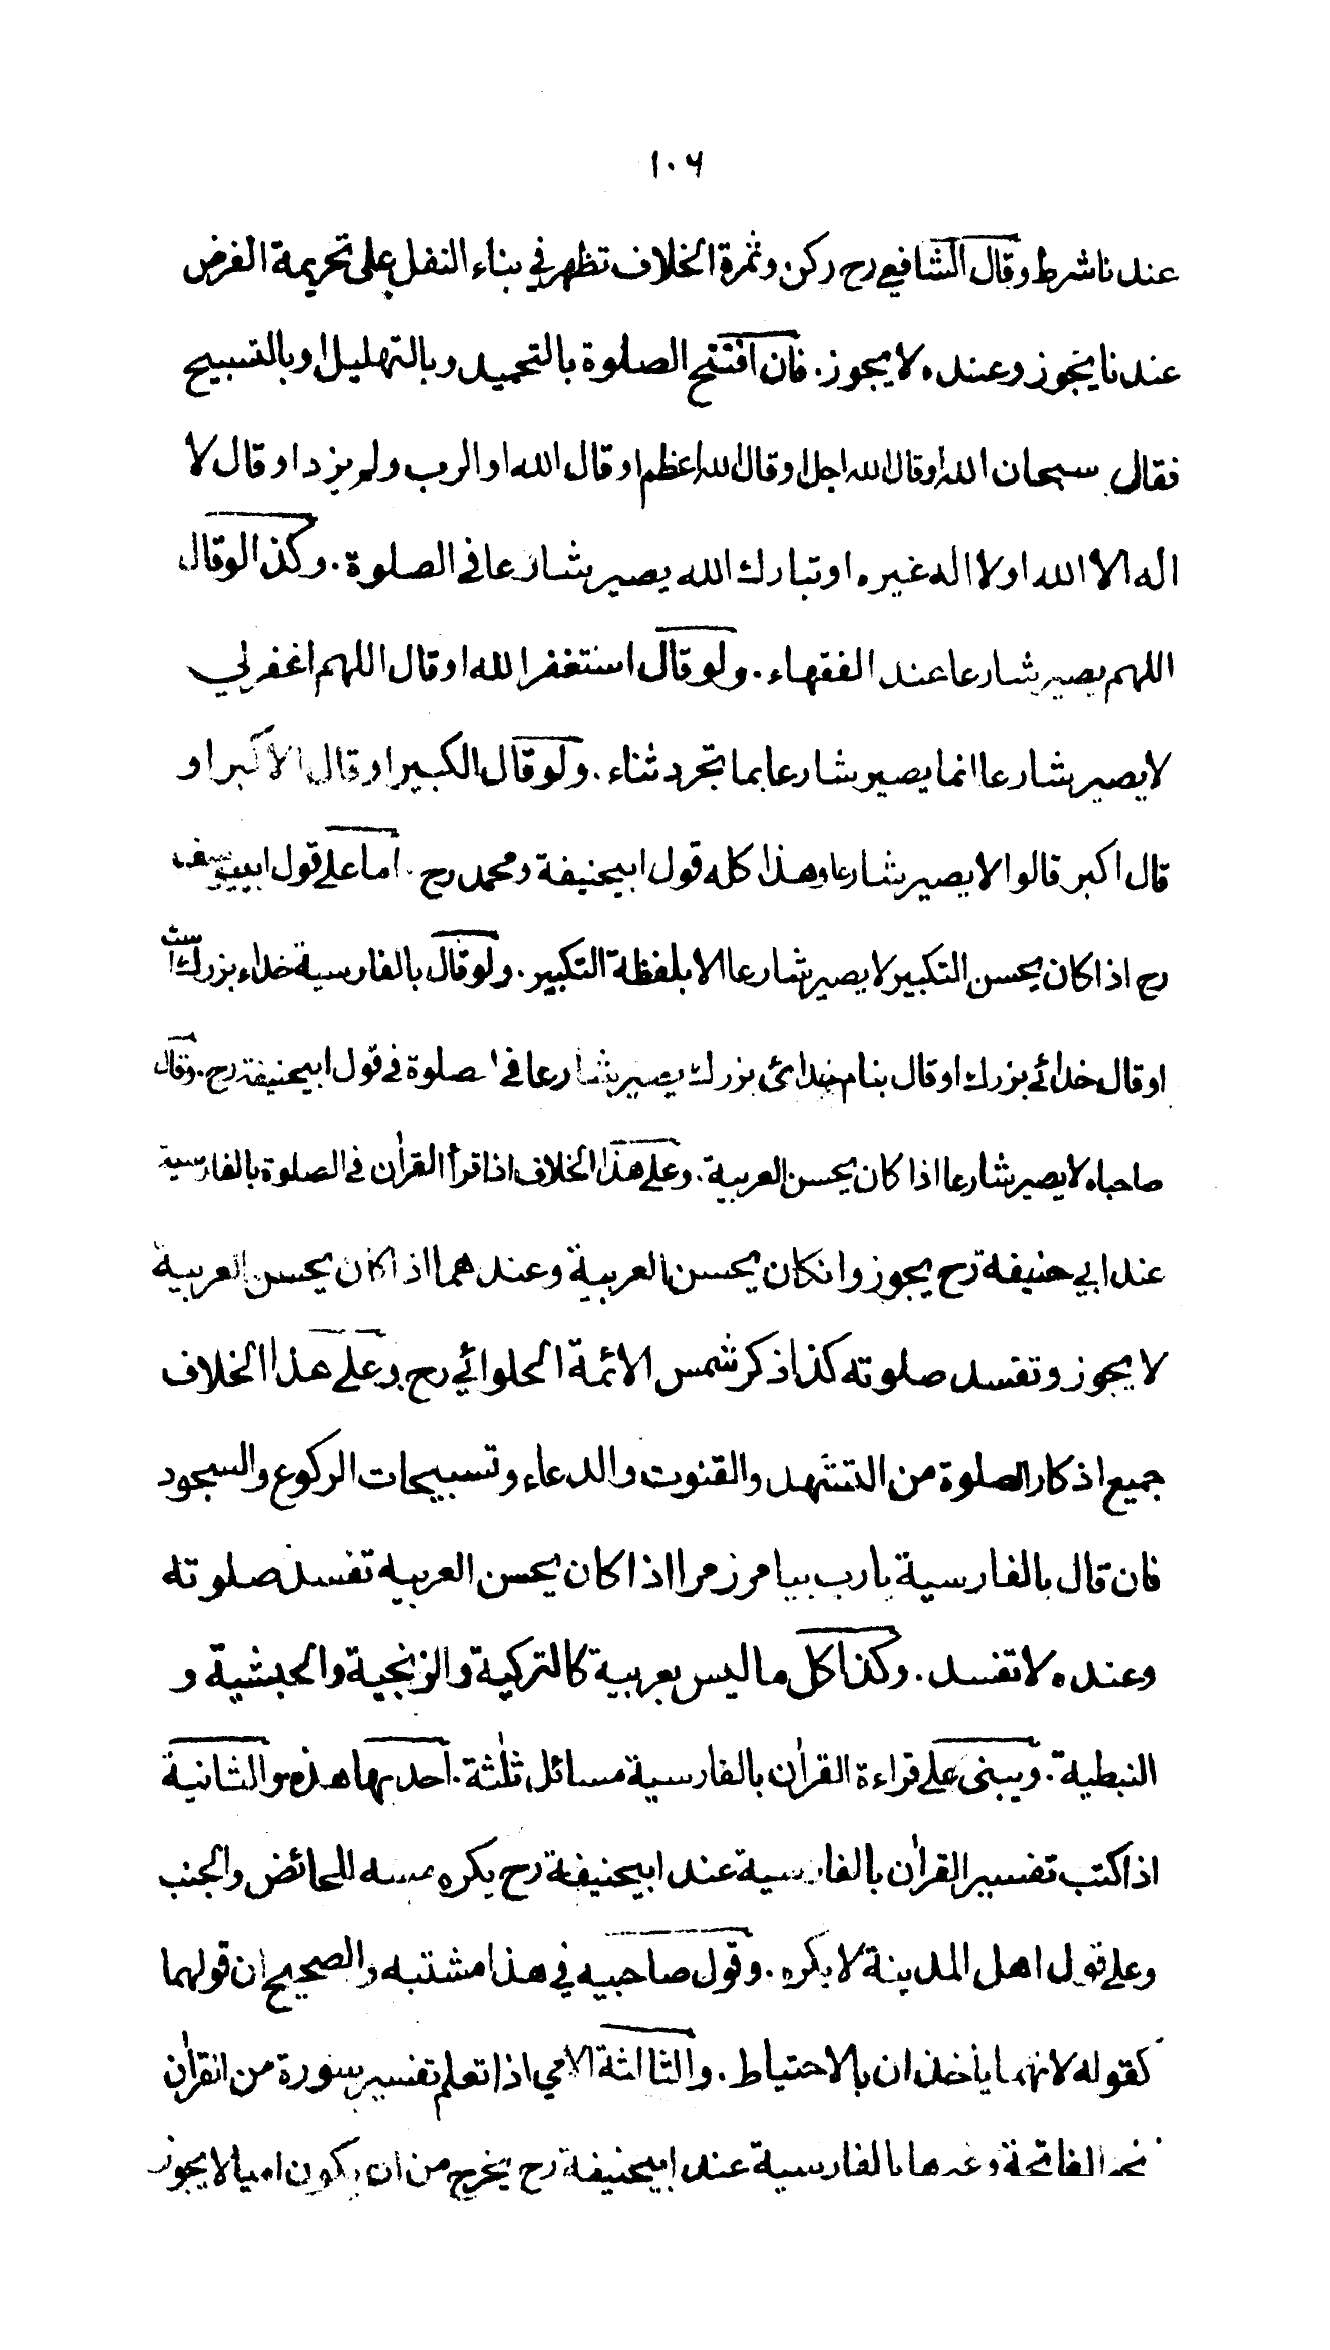 ١٠٦
عندنا شرط وقال الشافعي رح ركن وثمرة الخلاف تظهر في بناء النفل على تحريمة الفرض
عندنا يجوز وعنده لا يجوز. فان افتتح الصلوة بالتحميد وبالتهليل او بالتسبيح
فقال سبحان الله او قال الله اجل او قال الله اعظم او قال الله او الرب ولم يزد او قال لا
اله الا الله او لا اله غيره او تبارك الله يصير شارعا في الصلوة. وكذا لو قال
اللهم يصير شارعا عند الفقهاء. ولو قال استغفر الله او قال اللهم اغفر لي
لا يصير شارعا انما يصير شارعا بما تجرد ثناء. ولو قال الكبير او قال الاكبر او
قال اكبر قالوا لا يصير شارعا وهذا كله قول ابيحنيفة ومحمد رح. اما على قول ابييوسف
رح اذا كان يحسن التكبير لا يصير شارعا الا بلفظة التكبير. ولو قال بالفارسية خداء بزرك است
او قال خدائے بزرك او قال بنام خدائ بزرك يصير شارعا في الصلوة في قول ابيحنيفة رح. وقال
صاحباه لا يصير شارعا اذا كان يحسن العربية. وعلى هذا الخلاف اذا قرأ القرأن في الصلوة بالفارسية
عند ابي حنيفة رح يجوز وانكان يحسن العربية وعندهما اذا كان يحسن العربية
لا يجوز وتفسد صلوته كذا ذكر شمس الائمة الحلوائي رح وعلى هذا الخلاف
جميع اذكار الصلوة من التشهد والقنوت والدعاء وتسبيحات الركوع والسجود
فان قال بالفارسية يارب بيامرز مرا اذا كان يحسن العربيه تفسد صلوته
وعنده لا تفسد. وكذا كل ما ليس بعربية كالتركية والزنجية والحبشية و
النبطية. ويبنى على قراءة القرأن بالفارسية مسائل ثلثة. احدىها هذه والثانية
اذا كتب تفسير القرأن بالفارسية عند ابيحنيفة رح يكره مسه للحائض والجنب
وعلى قول اهل المدينة لا يكره. وقول صاحبيه في هذا مشتبه والصحيح ان قولهما
كقوله لانهما يأخذان بالاحتياط. والثالثة الامي اذا تعلم تفسير سورة من القرأن
نحو الفاتحة وغيرها بالفارسية عند ابيحنيفة رح يخرج من ان يكون اميا لا يجوز